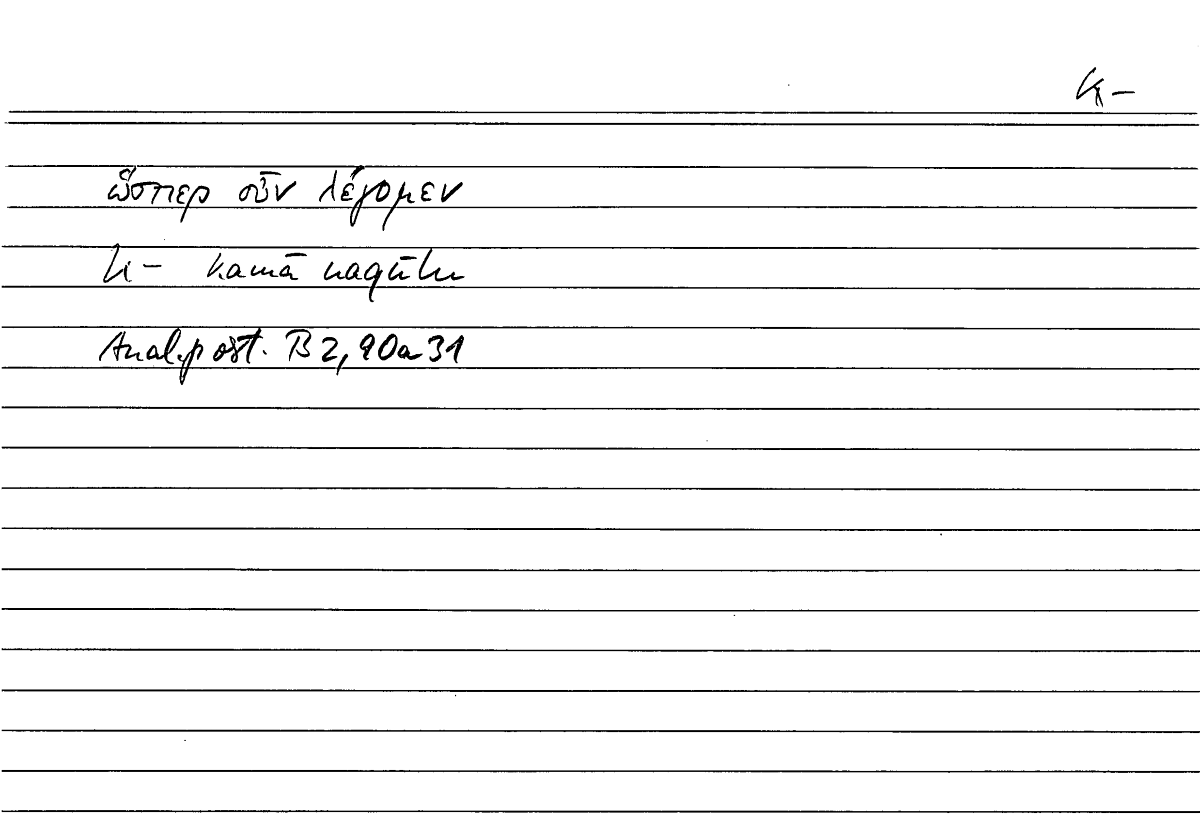 K-
ὥσπερ οὖν λέγομεν
k- kamā naqūlu
Anal.post. B 2, 90a 31